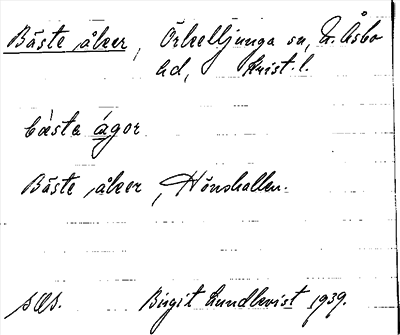 Bäste åker, Örkelljunga sn, N. Åsbo
hd, Krist. l.
bæ̀sta ágor
Bäste åker, Hönshallen.
Birgit Lundkvist 1939.